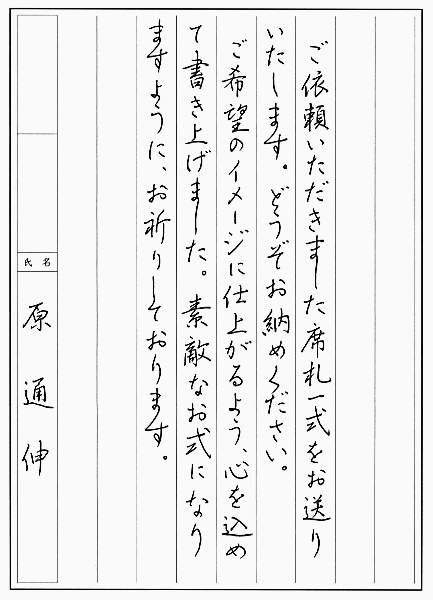 ご依頼いただきました席札一式をお送り
いたします。どうぞお納めください。
ご希望のイメージに仕上がるよう、心を込め
て書き上げました。素敵なお式になり
ますように、お祈りしております。
氏名
原通伸